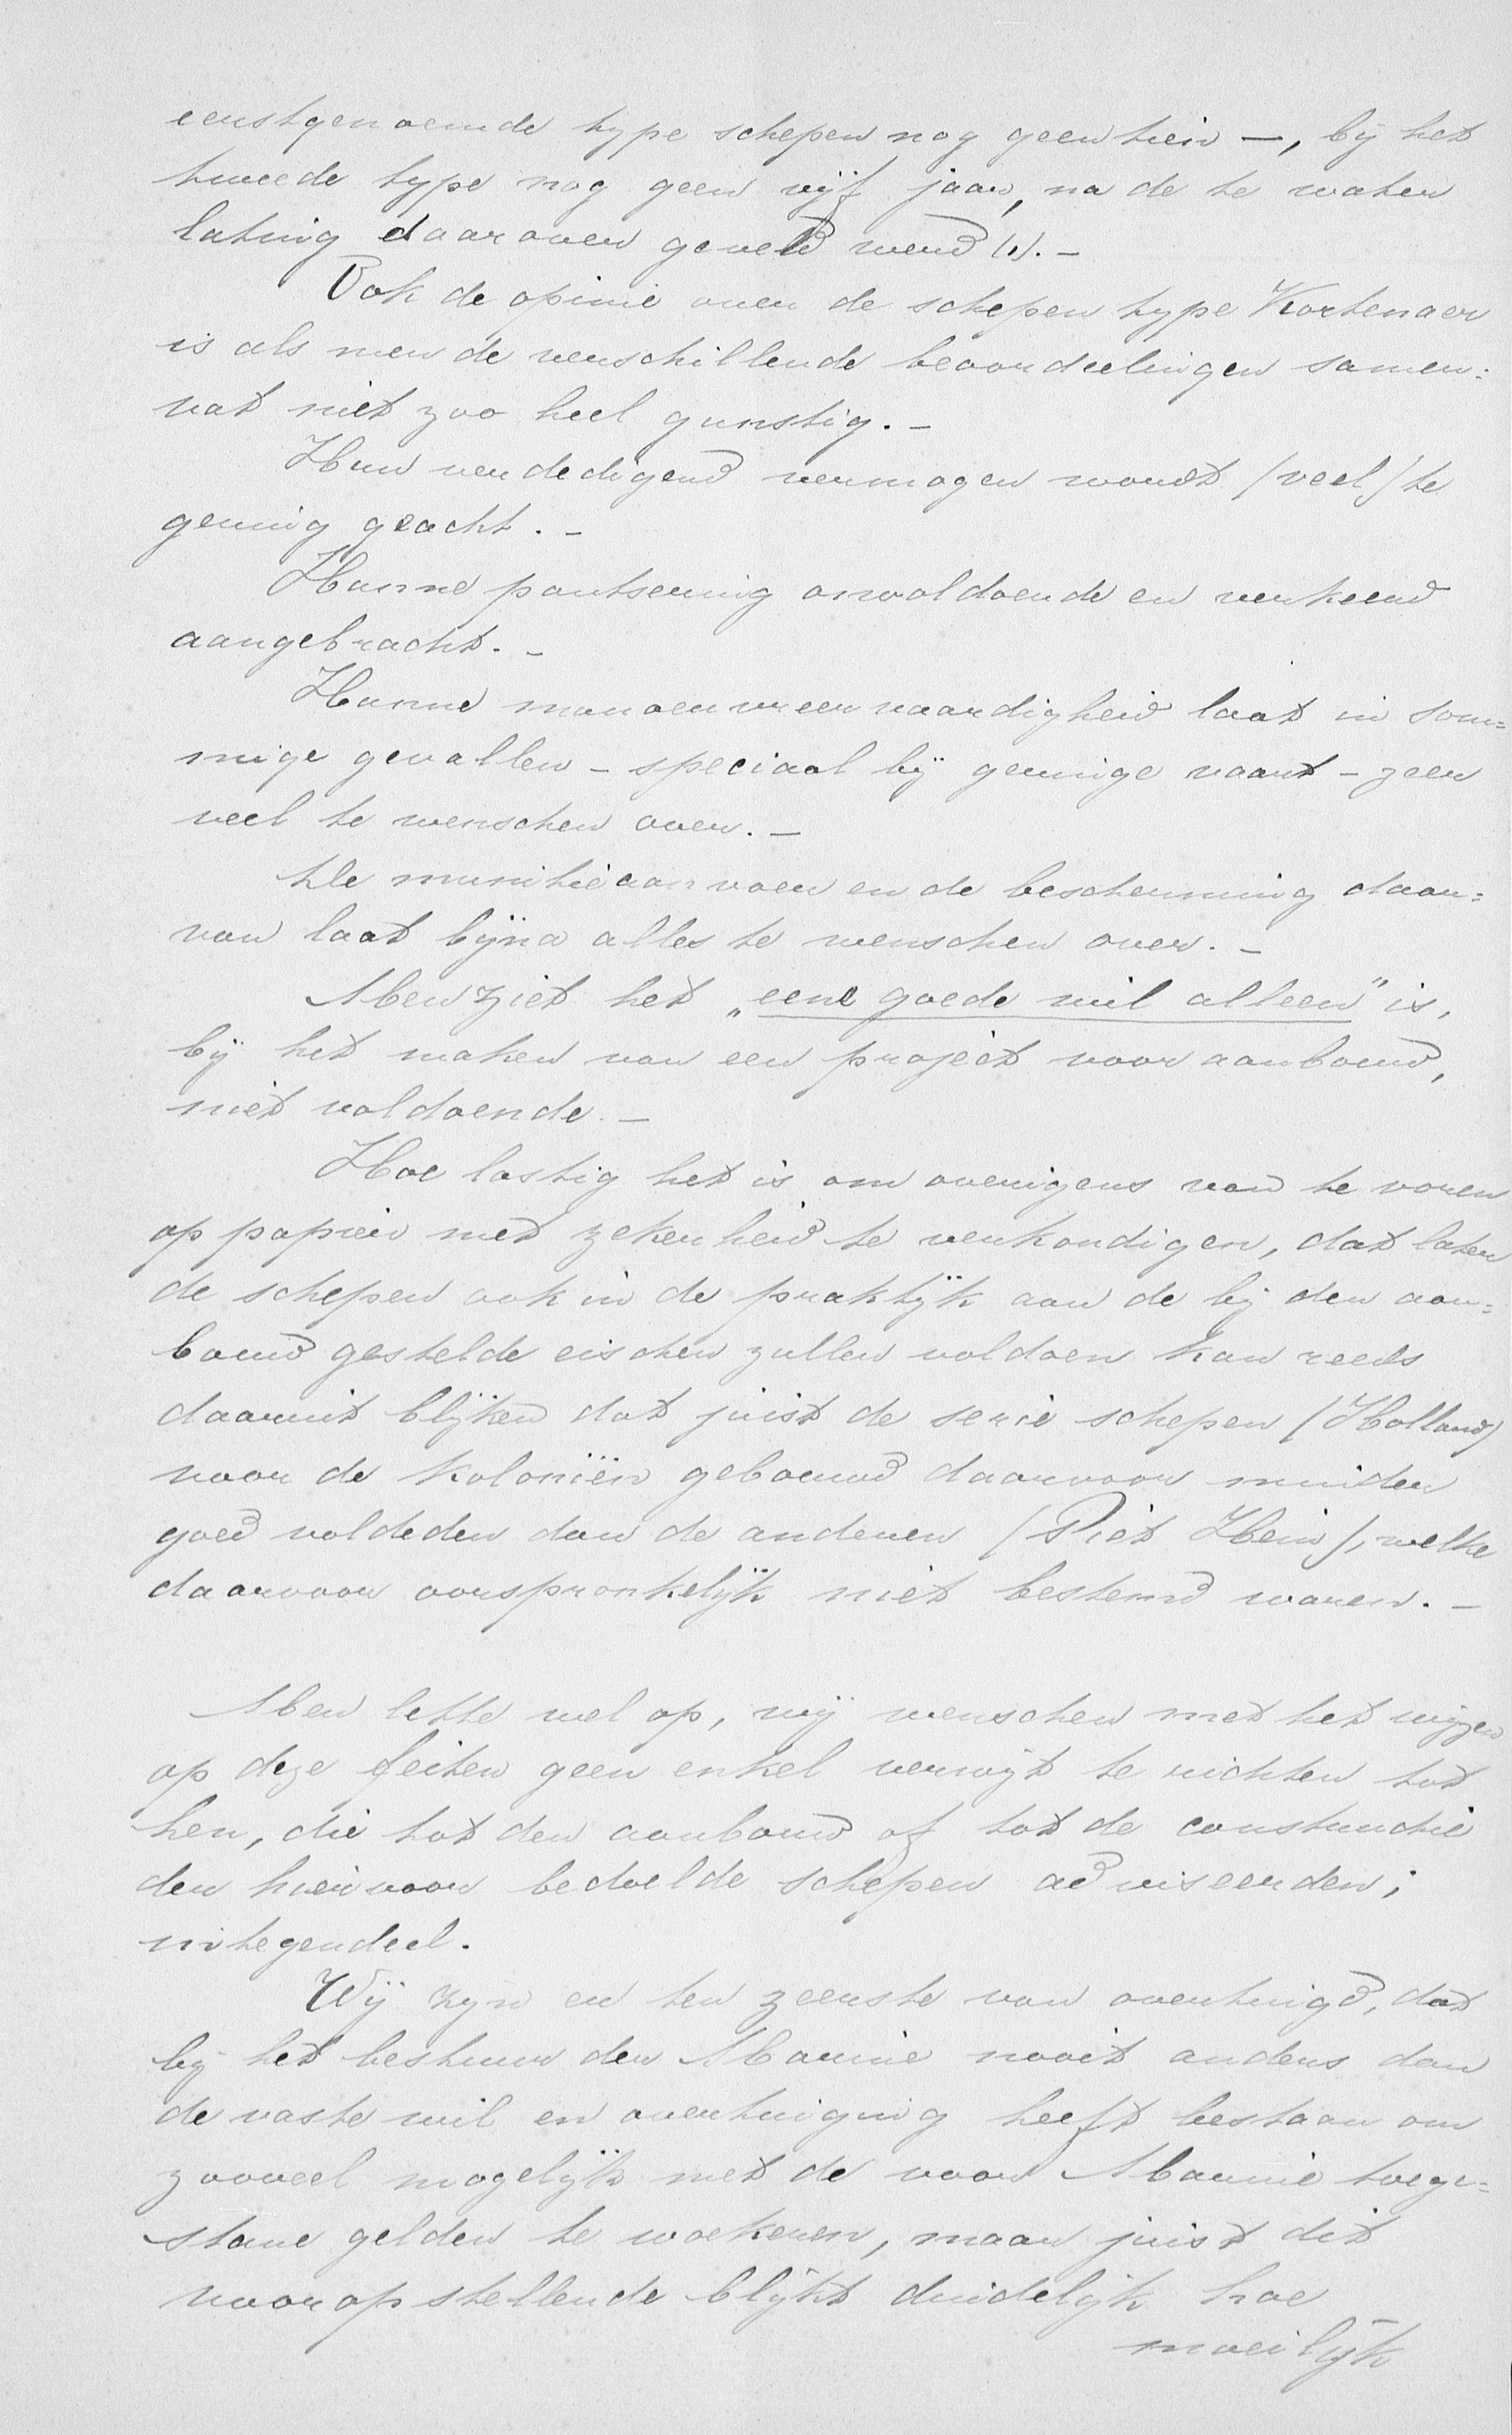 eerstgenoemde type schepen nog geen tien —, bij het
tweede type nog geen vijf jaar, na de te water
lating daarover geveld werd (1). —
Ook de opinie over de schepen type Kortenaer
is als men de verschillende beoordeelingen samen=
vat niet zoo heel gunstig. —
Hun verdedigend vermogen wordt (veel) te
gering geacht. —
Hunne pantsering onvoldoende en verkeerd
aangebracht. —
Hunne manoeuvreervaardigheid laat in som=
mige gevallen – speciaal bij geringe vaart – zeer
veel te wenschen over. —
De munitieaanvoer en de bescherming daar=
van laat bijna alles te wenschen over. —
Men ziet het „eene goede wil alleen” is,
bij het maken van een project voor aanbouw,
niet voldoende. —
Hoe lastig het is om overigens van te voren
op papier met zekerheid te verkondigen, dat later
de schepen ook in de praktijk aan de bij den aan=
bouw gestelde eischen zullen voldoen kan reeds
daaruit blijken dat juist de serie schepen (Holland)
voor de koloniën gebouwd daarvoor minder
goed voldeden dan de anderen (Piet Hein), welke
daarvoor oorspronkelijk niet bestemd waren. —
Men lette wel op, wij wenschen met het wijzen
op deze feiten geen enkel verwijt te richten tot
hen, die tot den aanbouw of tot de constructie
der hiervoor bedoelde schepen adviseerden;
integendeel.
Wij zijn er ten zeerste van overtuigd, dat
bij het bestuur der Marine nooit anders dan
de vaste wil en overtuiging heeft bestaan om
zooveel mogelijk met de voor Marine toege=
stane gelden te woekeren, maar juist dit
vooropstellende blijkt duidelijk hoe
moeilijk